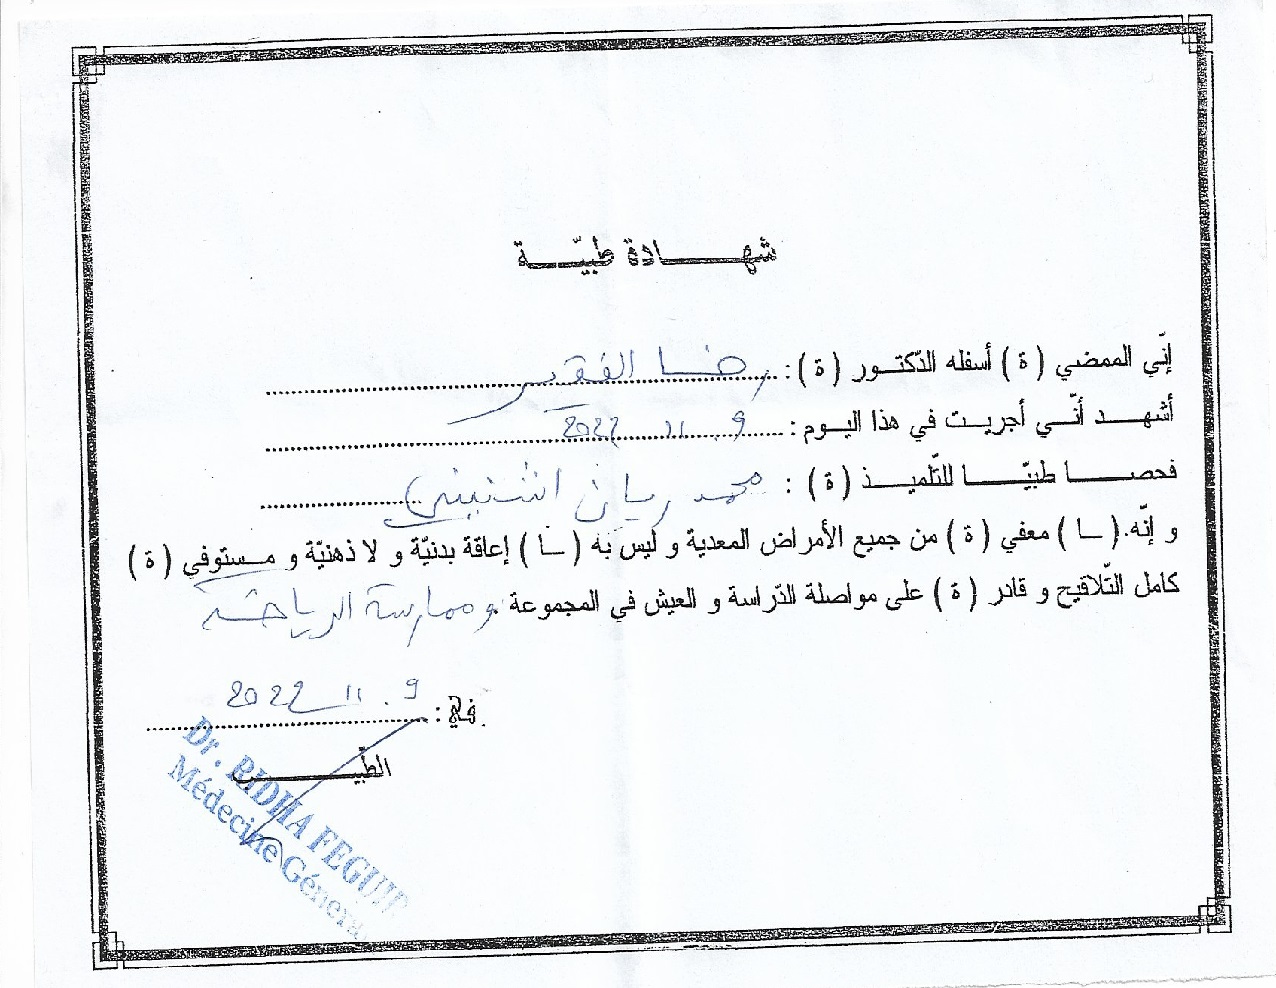 شهادة طبيّة
إنّي الممضي (ة) أسفله الدّكتور (ة) : رضا الفقير
أشهد أنّي أجريت في هذا اليوم : 9 .11. 2022
فحصا طبيّا للتّلميذ (ة) : محمد ريان
و إنّه (ـا) معفي (ة) من جميع الأمراض المعدية و ليس به (ـا) إعاقة بدنيّة و لا ذهنيّة و مستوفي (ة)
كامل التّلاقيح و قادر (ة) على مواصلة الدّراسة و العيش في المجموعة و ممارسة الرياضة
في : 9 . 11 2022
الطّبيب
Dr. RIDHA FEGUIR
Médecine Générale